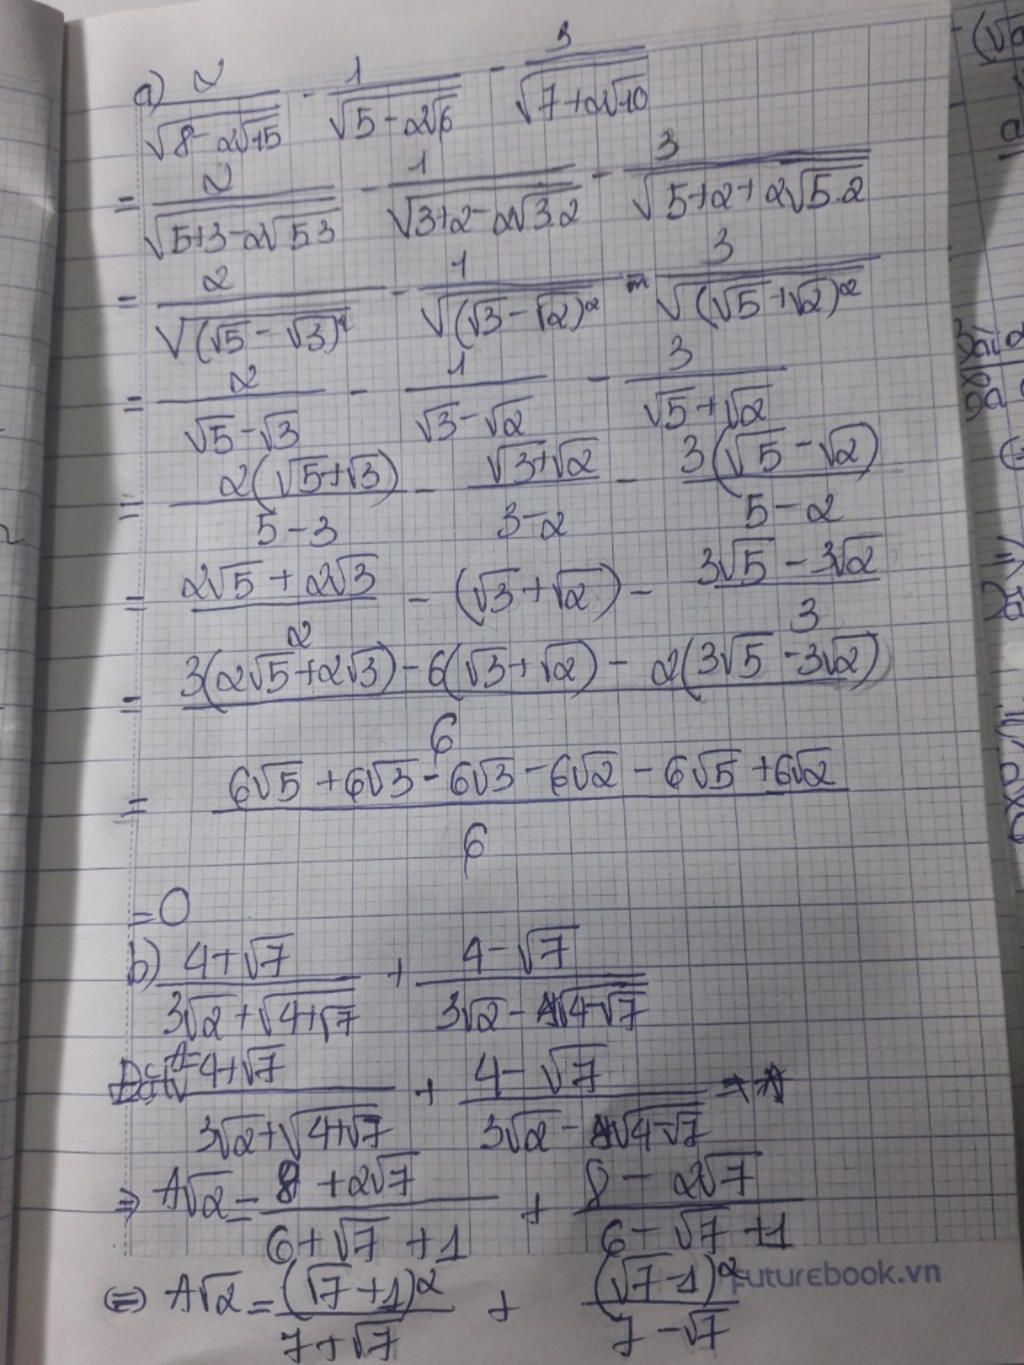 a) 2/√(8-2√15) - 1/√(5-2√6) - 3/√(7+2√10)
= 2/√(5+3-2√5.3) - 1/√(3+2-2√3.2) - 3/√(5+2+2√5.2)
= 2/√((√5-√3)²) - 1/√((√3-√2)²) - 3/√((√5+√2)²)
= 2/(√5-√3) - 1/(√3-√2) - 3/(√5+√2)
= 2(√5+√3)/(5-3) - (√3+√2)/(3-2) - 3(√5-√2)/(5-2)
= (2√5+2√3)/2 - (√3+√2) - (3√5-3√2)/3
= (3(2√5+2√3)-6(√3+√2)-2(3√5-3√2))/6
= (6√5+6√3-6√3-6√2-6√5+6√2)/6
= 0
b) (4+√7)/(3√2+√(4+√7)) + (4-√7)/(3√2-√(4-√7))
Đặt A= (4+√7)/(3√2+√(4+√7)) + (4-√7)/(3√2-√(4-√7))
⇒ A√2 = (8+2√7)/(6+√7+1) + (8-2√7)/(6-√7+1)
⇔ A√2 = (√7+1)²/(7+√7) + (√7-1)²/(7-√7)
Futurebook.vn